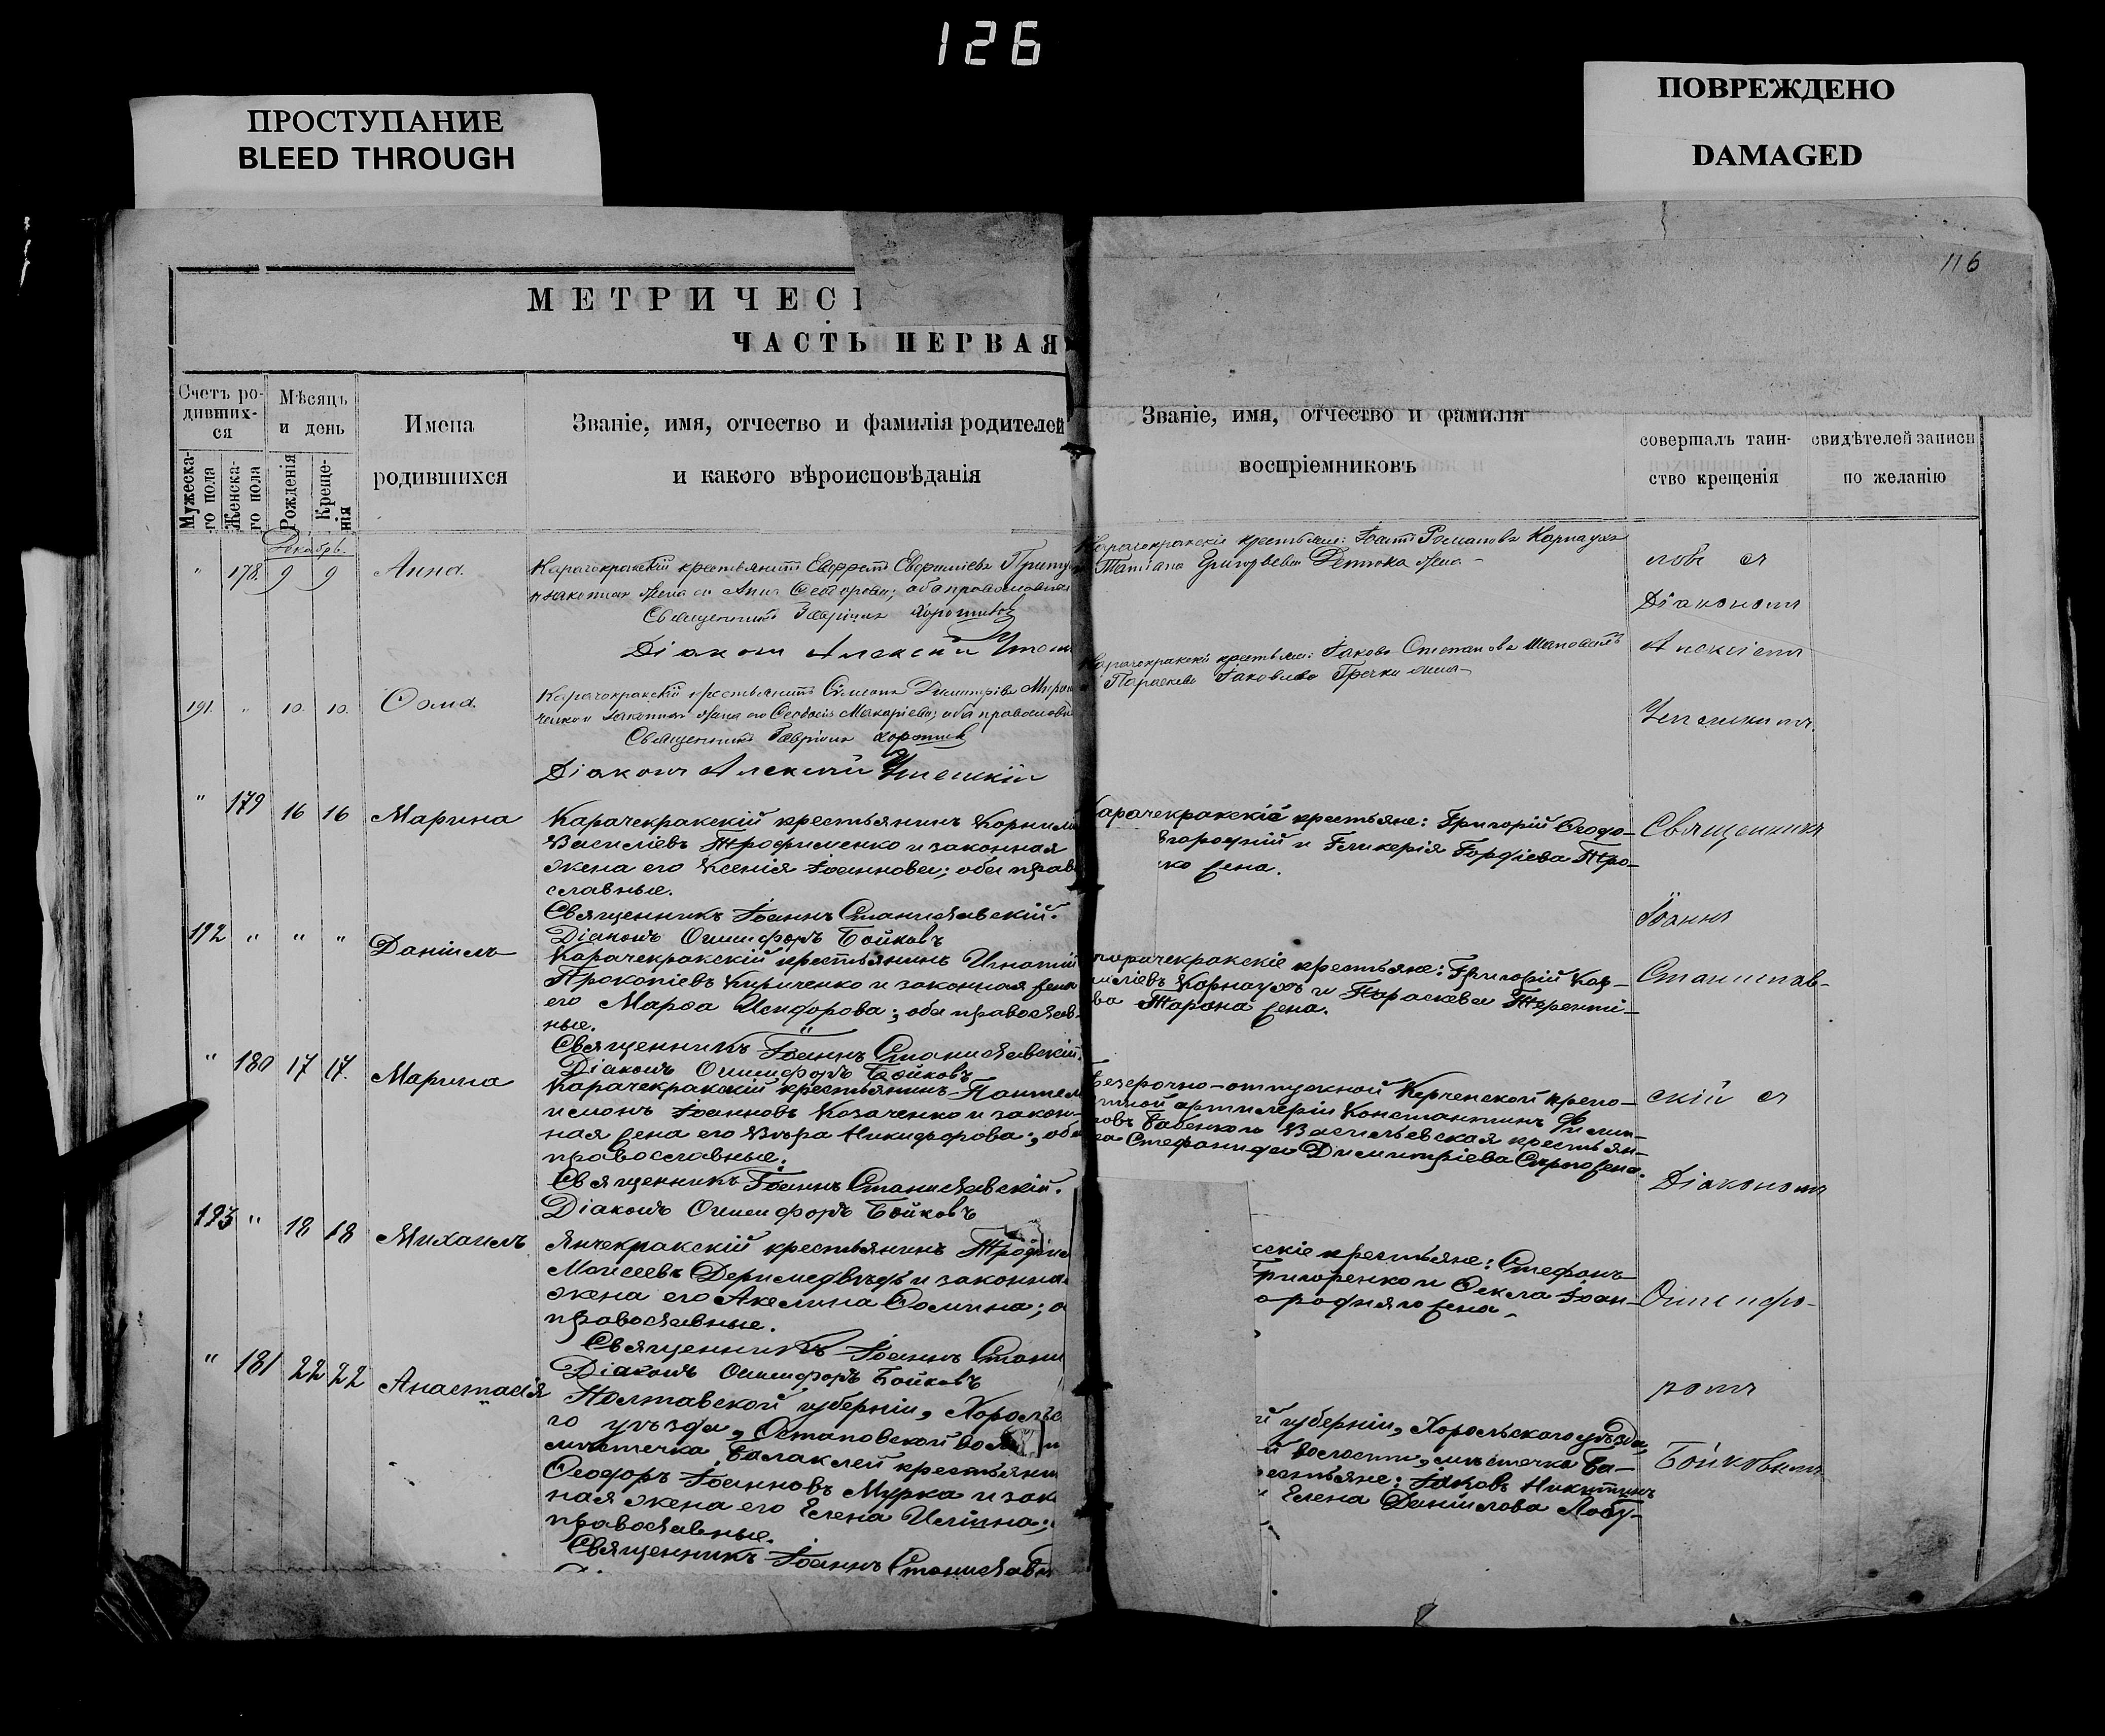 126
ПРОСТУПАНИЕ
BLEED THROUGH
ПОВРЕЖДЕНО
DAMAGED
116
МЕТРИЧЕС
ЧАСТЬ ПЕРВАЯ
Счетъ ро-
дивших-
ся
Мужеска-
го пола
Женска-
го пола
Мѣсяцъ
и день
Рожденія
Креще-
нія
Имена
родившихся
Званіе, имя, отчество и фамилія родителей
и какого вѣроисповѣданія
Званіе, имя, отчество и фамилія
воспріемниковъ
совершалъ таин-
ство крещенія
свидѣтелей записи
по желанію
Декабрь.
" 178. 9 9 Анна.
Карачокракскій крестьянинъ
и законная жена его Анна Ѳеодорова; оба православные
Священникъ Гавріилъ
Діаконъ Алексій
Карачокракскіе крестьяне: Іоаннъ Романовъ Карнаухъ
Татіана Григорьева жена
съ
Діакономъ
191. " 10. 10. Ѳома.
Карачокракскій крестьянинъ Симеонъ Димитріевъ Мирон
ченко и законная жена его Ѳеодосія Макаріева; оба православн
Священникъ Гавріилъ
Діаконъ Алексій
Карачокракскіе крестьяне: Іаковъ Стефановъ
Параскева Іаковлева Гречки жена
Алексіемъ
" 179 16 16 Марина
Карачекракскій крестьянинъ Корнилій
Василіевъ Трофименко и законная
жена его Ксенія Іоаннова; оба право
славные.
Священникъ Іоаннъ Станиславскій.
Діаконъ Онисифоръ Бойковъ
арачекракскіе крестьяне: Григорій Ѳеодо-
городній и Гликерія Гордіева Тро-
ко жена.
Священникъ
Іоаннъ
192 " " " Даніилъ
Карачекракскій крестьянинъ Игнатій
Прокопіевъ Кириченко и законная жена
его Марѳа Исидорова; оба православ-
ные.
Священникъ Іоаннъ Станиславскій.
Діаконъ Онисифоръ Бойковъ
арачекракскіе крестьяне: Григорій Кар-
иліевъ Карнаухъ и Параскева Теренті-
ва Тарана жена.
Станислав-
" 180 17 17. Марина
Карачекракскій крестьянинъ Пантел
имонъ Іоанновъ Козаченко и закон-
ная жена его Вѣра Никифорова; оба
православные.
Священникъ Іоаннъ Станиславскій.
Діаконъ Онисифоръ Бойковъ
Безсрочно-отпускной Керченской крепо-
стной артилеріи Константинъ Филип-
повъ Бабенко и Васильевская крестьян-
ка Стефанида Димитріева жена.
скій съ
Діакономъ
193 " 18 18 Михаилъ
Янчекракскій крестьянинъ Трофим
Моисеевъ Деримедвѣдь и законна
жена его Акелина Ѳомина; о
православные.
Священникъ Іоаннъ Стани
Діаконъ Онисифоръ Бойковъ
скіе крестьяне: Стефанъ
Григоренко и Ѳекла Іоан-
ородняго жена.
Онисифо-
ромъ
" 181 22 22 Анастасія
Полтавской губерніи, Хорольс
го уѣзда, Остаповской вол
мѣстечка Балаклеи крестьянин
Ѳеодоръ Іоанновъ Мурка и зак
ная жена его Елена Иліина;
православные.
Священникъ Іоаннъ Станиславск
й губерніи, Хорольскаго уѣзда,
й волости, мѣстечка Ба-
рестьяне: Іаковъ Никитинъ
и Елена Даніилова Лобу-
Бойковымъ